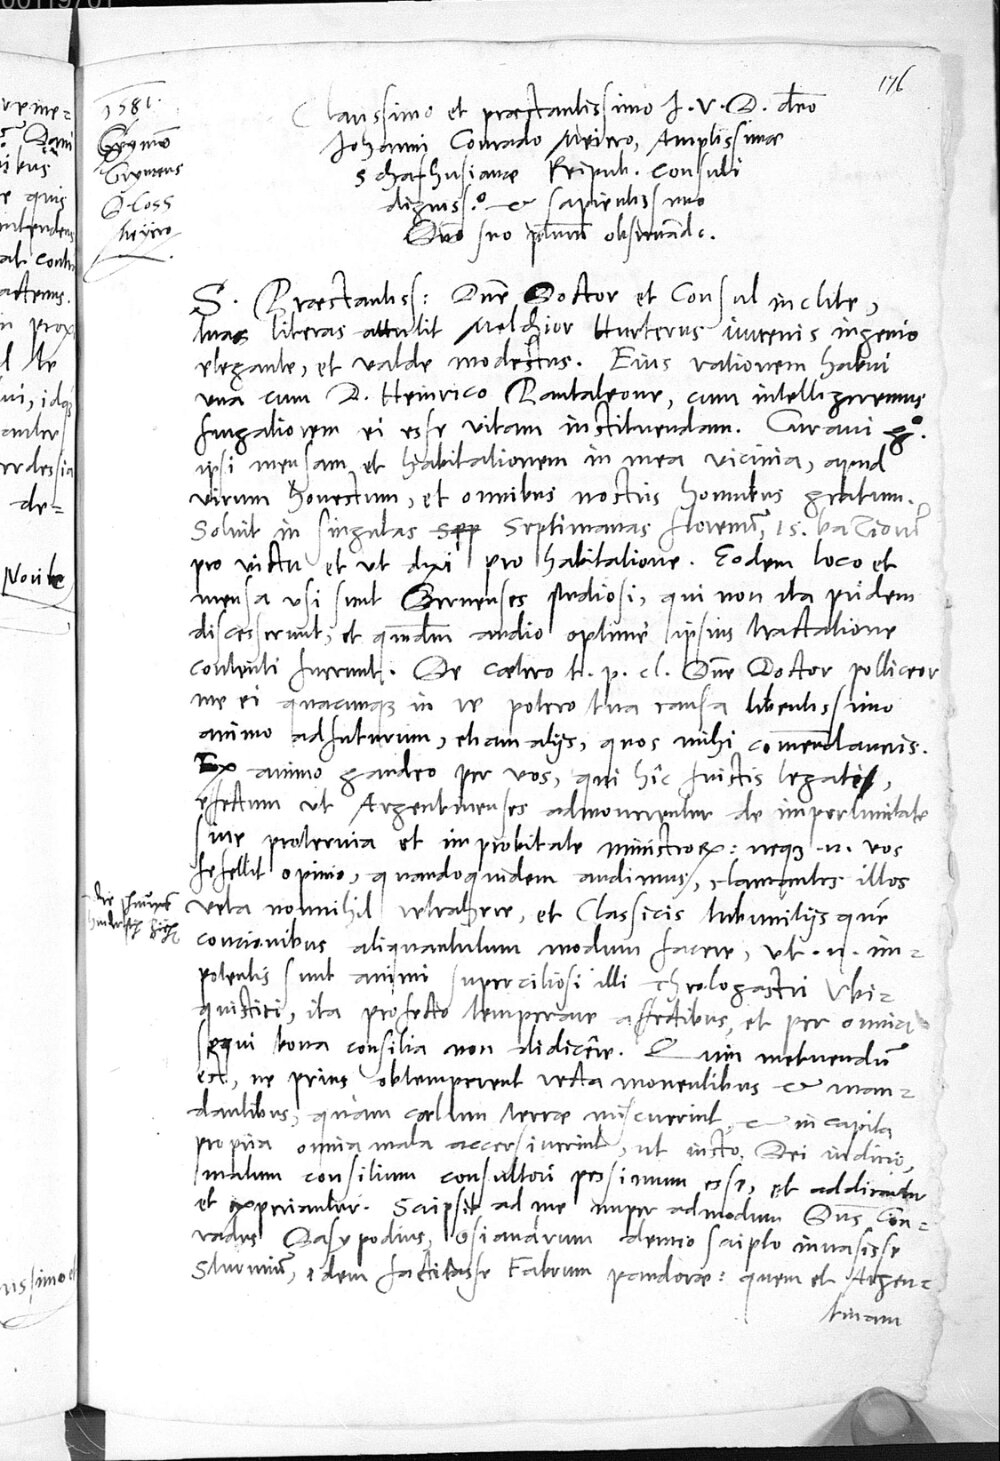 176
1581.
Grynæus
Meiero
Clarissimo et præstantissimo J. V. D. dno
Johanni Conrado Meiero, Amplissimæ
Schafhusianæ Reipub. Consuli
digniss.º & sapientissimo
Dno suo observando.
S. Præstantiss: Dne Doctor et Consul inclite,
tuas literas attulit Melchior Hurterus iuvenis ingenio
elegante, et valde modestus. Eius rationem habui
una cum D. Heinrico Pantaleone, cum intelligeremus
frugaliorem ei esse vitam instituendam. Curavi g.º
ipsi mensam et habitationem in mea vicinia, apud
virum honestum, et omnibus nostris hominibus gratum.
Solvit in singulas Septimanas florenum, 15. bationum
pro victu et ut dixi pro habitatione. Eodem loco et
mensa usi sunt Bernenses studiosi, qui non ita pridem
discesserunt, et quidem audio optime ipsius tractatione
contenti fuerunt. De cætero t. p. cl. Dne Doctor polliceor
me ei quacunq; in re potero tua causa libentissimo
animo adfuturum, etiam alijs, quos mihi comendaveris.
Ex animo gaudeo per vos, qui hîc fuistis legati,
effectum ut Argentinenses admonerentur de importunitate
sive protervia et improbitate ministrorum: neq; .n. vos
fefellit opinio, quandoquidem audimus, clamantes illos
vela nonnihil retrahere, et Classicis tubinilijs que
concionibus aliquantulum modum facere, ut .n. im=
potentis sunt animi superciliosi illi theologastri Ubi=
quistici, ita profecto temperare affectibus, et per omnia
sequi bona consilia non didicêre. Quin metuendu
est, ne prius obtemperent recta monentibus & man=
dantibus, quàm cœlum terræ miscuerint, & in capita
propria omnia mala accersiverint, ut iusto Dei iudicio,
malum consilium consultori pessimum esse, et addiscantur
et experiantur. Scripsit ad me nuper admodum Dns Con=
radus Dasypodius, Osiandrum denuo scripto invasisse
Sturmium, idem factitasse Fabrum pandoræ: quem et Argen=
tinam